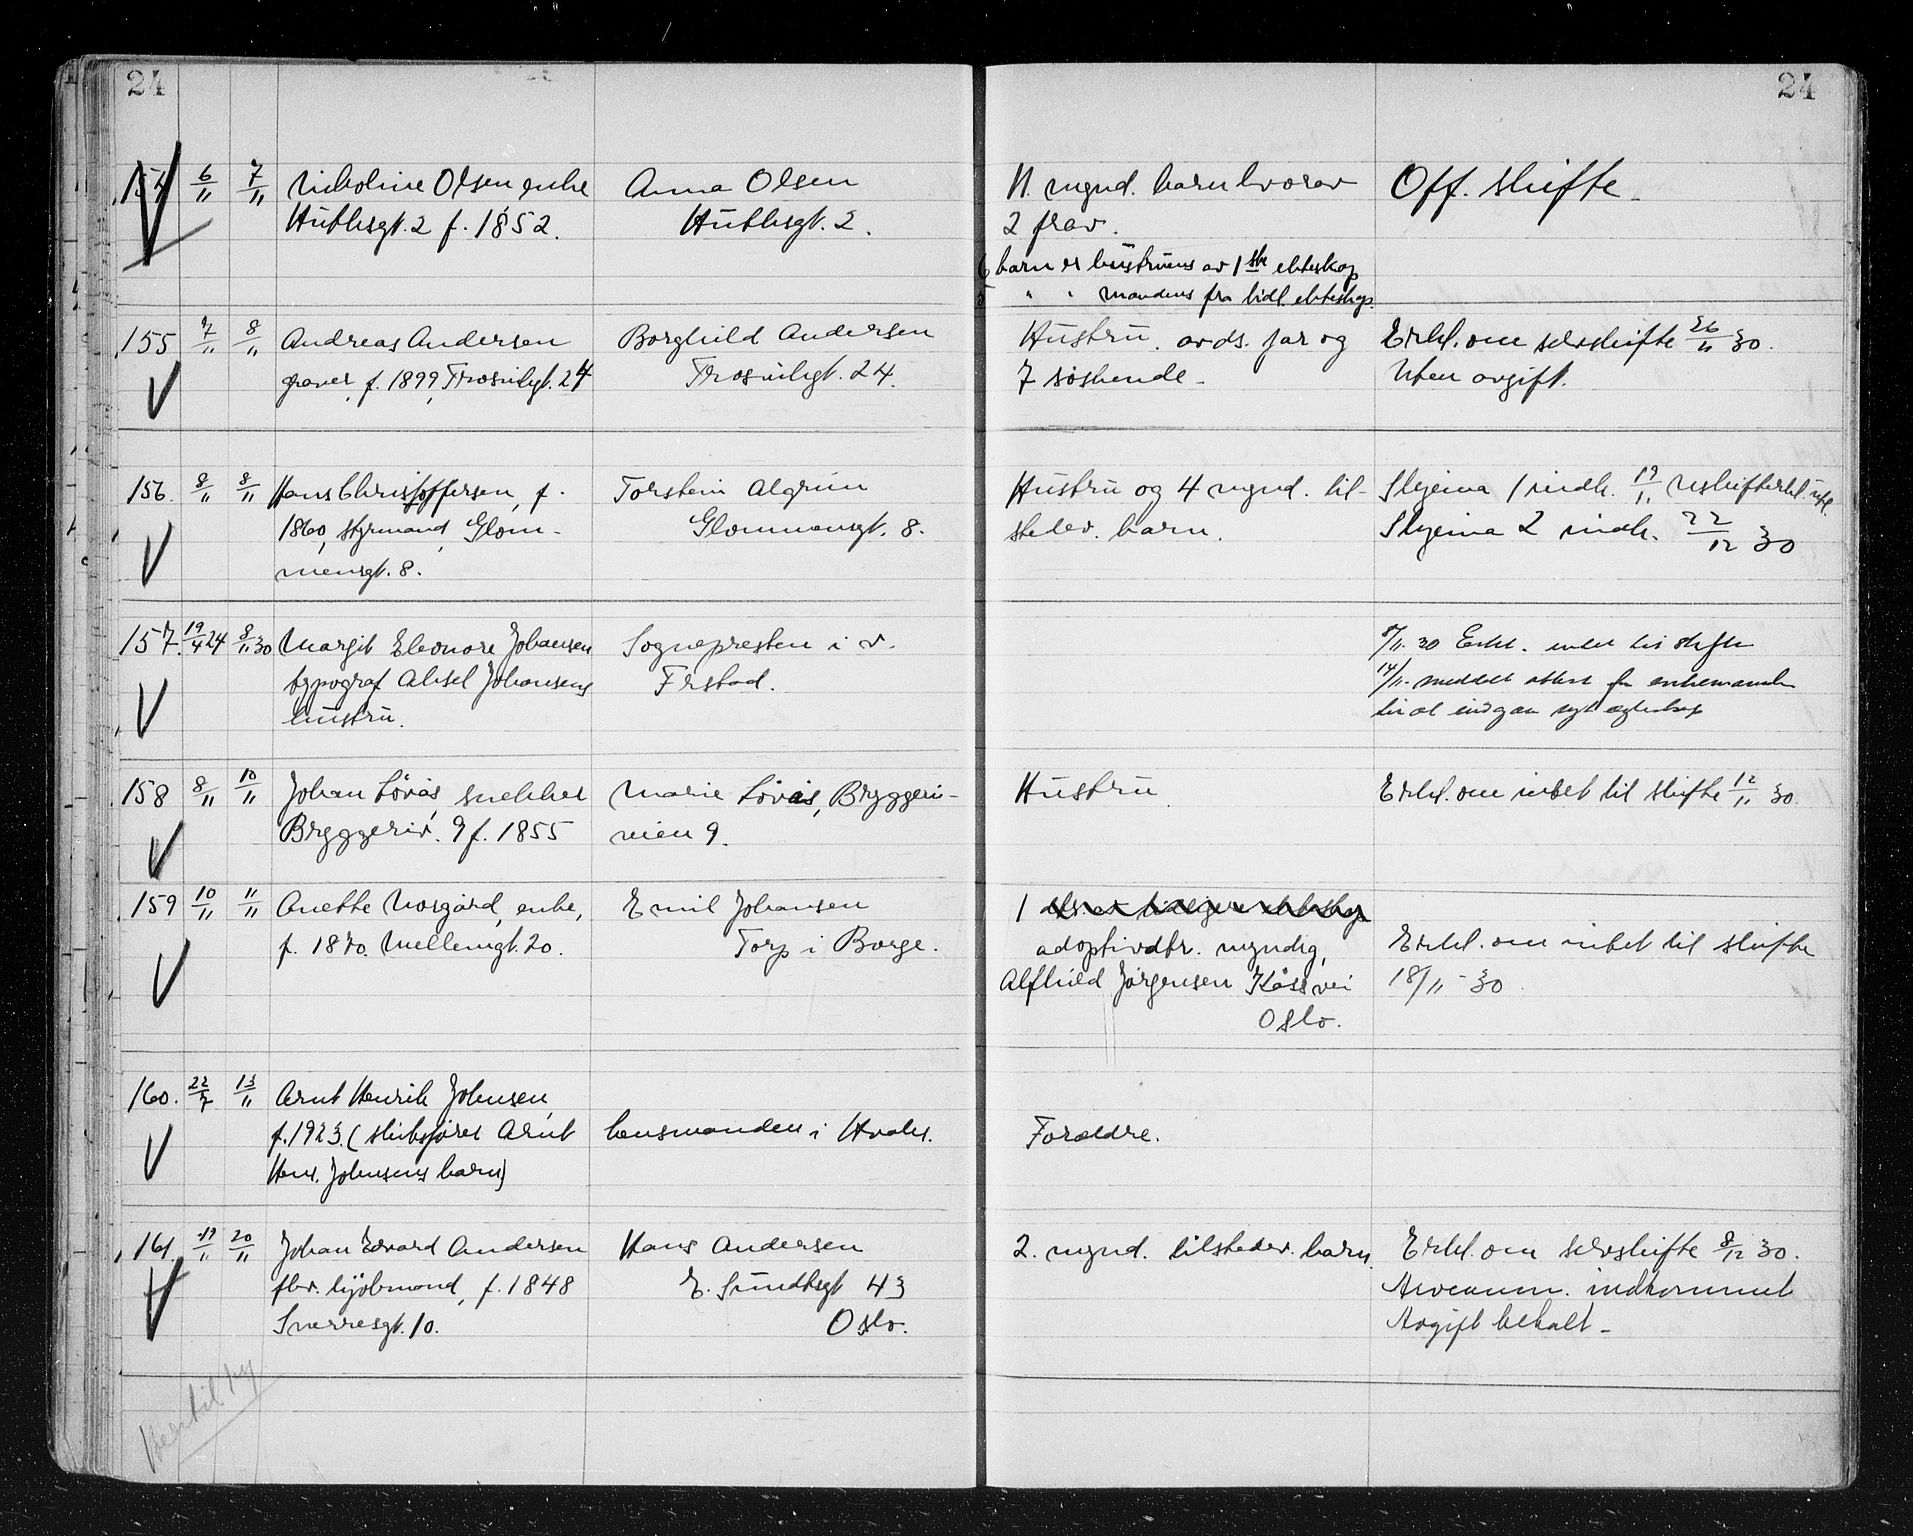 24
24
154 6/11 7/11 Nicoline Olsen enke Anna Olsen 11 mynd. barn hvorav Off. skifte
Huthsgt. 2 f. 1852. Huthsgt. 2. 2 frav.
6 barn er hustruens av 1ste ekteskap
5 " " mandens fra tidl. ekteskap
155 7/11 8/11 Andreas Andersen Borghild Andersen Hustru. avds. far og Erkl. om selvskifte 26/11 30.
graver, f. 1899, Trosvikgt. 24 Trosvikgt. 24. 7 søskende. Uten avgift.
156. 8/11 8/11 Hans Christoffersen, f. Torstein Algrim Hustru og 4 mynd. til- Skjema 1 indk. 19/11 Uskifteerkl.
1860, styrmand, Glom- Glommensgt. 8. stedev. barn. Skjema 2 indk. 22/12 30
mensgt. 8.
157. 19/4 24 8/11 30 Margit Eleonore Johansen Sognepresten i V. 8/11 30 Erkl. intet til skifte
typograf Aksel Johansens Frstad. 14/11 meddelt attest for enkemanden
hustru. til at indgaa nyt ægteskap
158 8/11 10/11 Johan Løvås, snekker Marie Løvås, Bryggeri- Hustru Erkl. om intet til skifte 12/11 30.
Bryggeriv. 9 f. 1855 veien 9.
159 10/11 11/11 Anette Norgård, enke, Emil Johansen 1
f. 1870. Mellemgt. 20. Torp i Borge. adoptivdtr. myndig, Erkl. om intet til skifte
Alfhild Jørgensen 18/11 - 30
Oslo.
160. 22/7 13/11 Arnt Henrik Johnsen,
f. 1923. (skibsfører Arnt lensmanden i Hvaler. Foreldre.
Henr. Johnsens barn)
161. 19/11 20/11 Johan Edvard Andersen Hans Andersen 2. mynd. tilstedev. barn Erkl. om selvskifte 8/12 30.
fhv. kjøbmand, f. 1848 E. Sundtsgt 43 Arveanm. indkommet
Sverresgt. 10. Oslo. Avgift betalt
Hertil